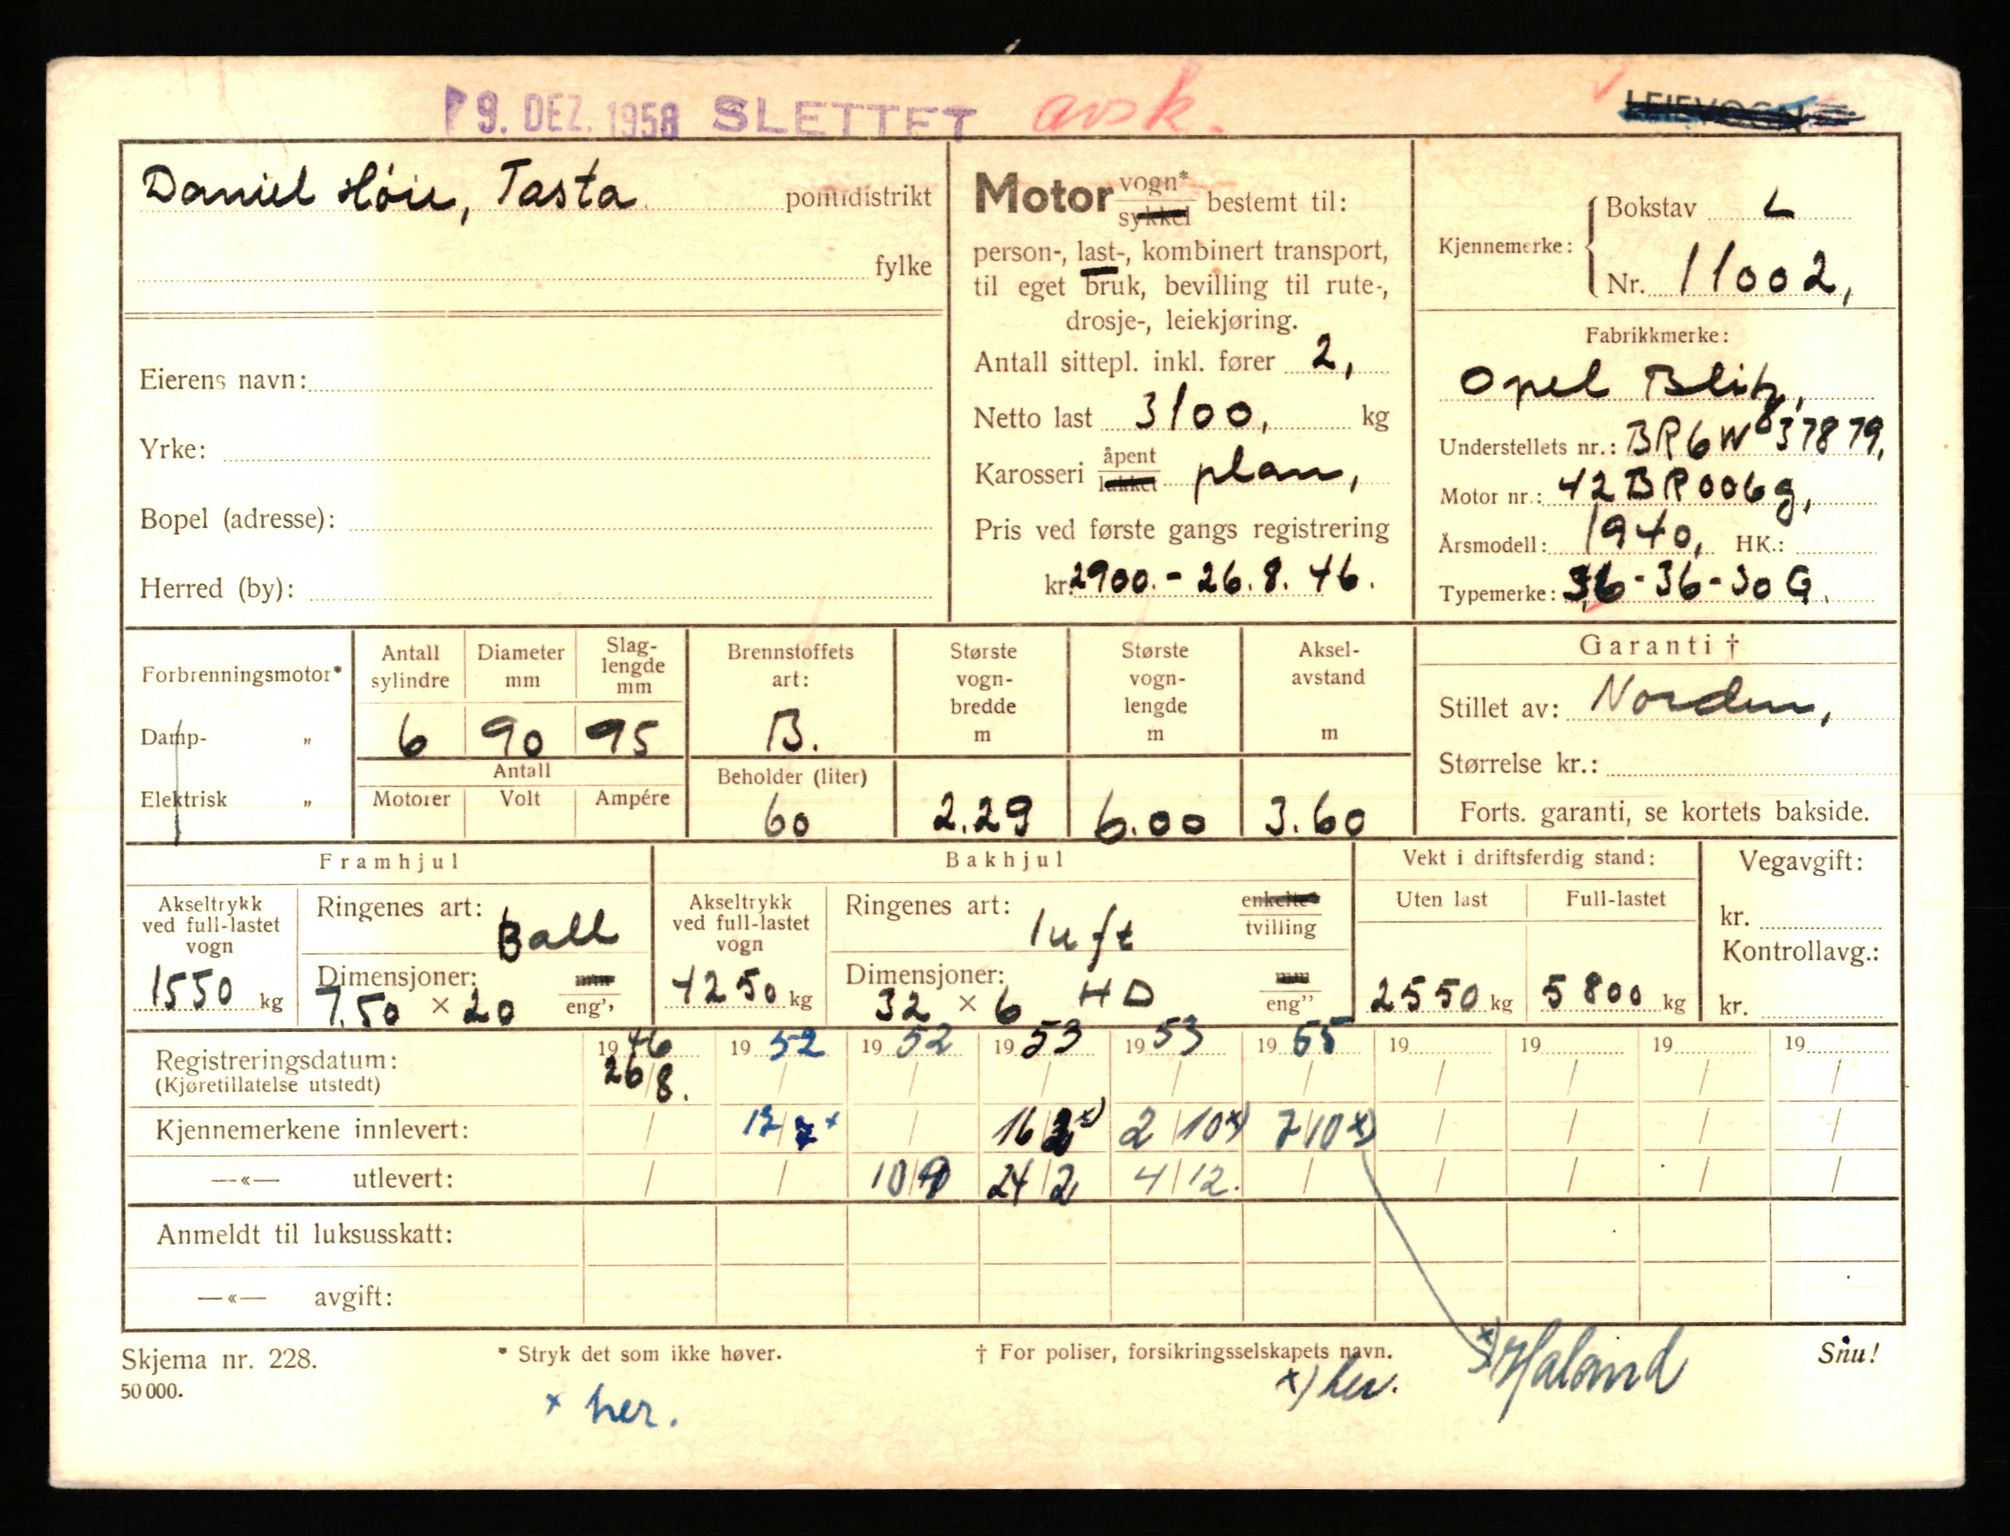 9. DEZ. 1958 SLETTET avsk.
LEIEVOGN
Daniel Höie, Tasta pomidistrikt
fylke
Eierens navn:
Yrke:
Bopel (adresse):
Herred (by):
Motor vogn*
sykkel bestemt til:
person-, last-, kombinert transport,
til eget bruk, bevilling til rute-,
drosje-, leiekjøring.
Antall sittepl. inkl. fører 2,
Netto last 3100, kg
Karosseri åpent
lukket plan,
Pris ved første gangs registrering
kr. 2900.- 26.8.46.
Kjennemerke: Bokstav L
Nr. 11002,
Fabrikkmerke:
Opel Blitz,
Understellets nr.: BR6W837879,
Motor nr.: 42BR006g,
Årsmodell: 1940, HK.:
Typemerke: 3,6-36-30G.
Forbrenningsmotor*
Damp- „
Elektrisk „
Antall sylindre 6
Diameter mm 90
Slag-lengde mm 95
Antall
Motorer Volt Ampére
Brennstoffets art: B.
Beholder (liter) 60
Største vogn-bredde m 2.29
Største vogn-lengde m 6.00
Aksel-avstand m 3.60
Garanti †
Stillet av: Norden,
Størrelse kr.:
Forts. garanti, se kortets bakside.
Framhjul
Akseltrykk ved full-lastet vogn
1550 kg
Ringenes art: Ball
Dimensjoner: mm
7.50 × 20 eng",
Bakhjul
Akseltrykk ved full-lastet vogn
4250 kg
Ringenes art: luft enkelte*
tvilling
Dimensjoner: mm
32 × 6 HD eng"
Vekt i driftsferdig stand:
Uten last Full-lastet
2550 kg 5800 kg
Vegavgift:
kr.
Kontrollavg.:
kr.
Registreringsdatum: 1946 1952 1952 1953 1953 1955 19 19 19 19
(Kjøretillatelse utstedt) 26/8. / / / / / / / / /
Kjennemerkene innlevert: / 17/7 x / 16/2 x) 2/10 x) 7/10 x) / / / /
—«— utlevert: / / 10/9 24/2 4/12. / / / / /
Anmeldt til luksusskatt:
—«— avgift:
Skjema nr. 228.
50 000.
* Stryk det som ikke høver.
† For poliser, forsikringsselskapets navn.
Snu!
x her.
x) her.
x) Haland